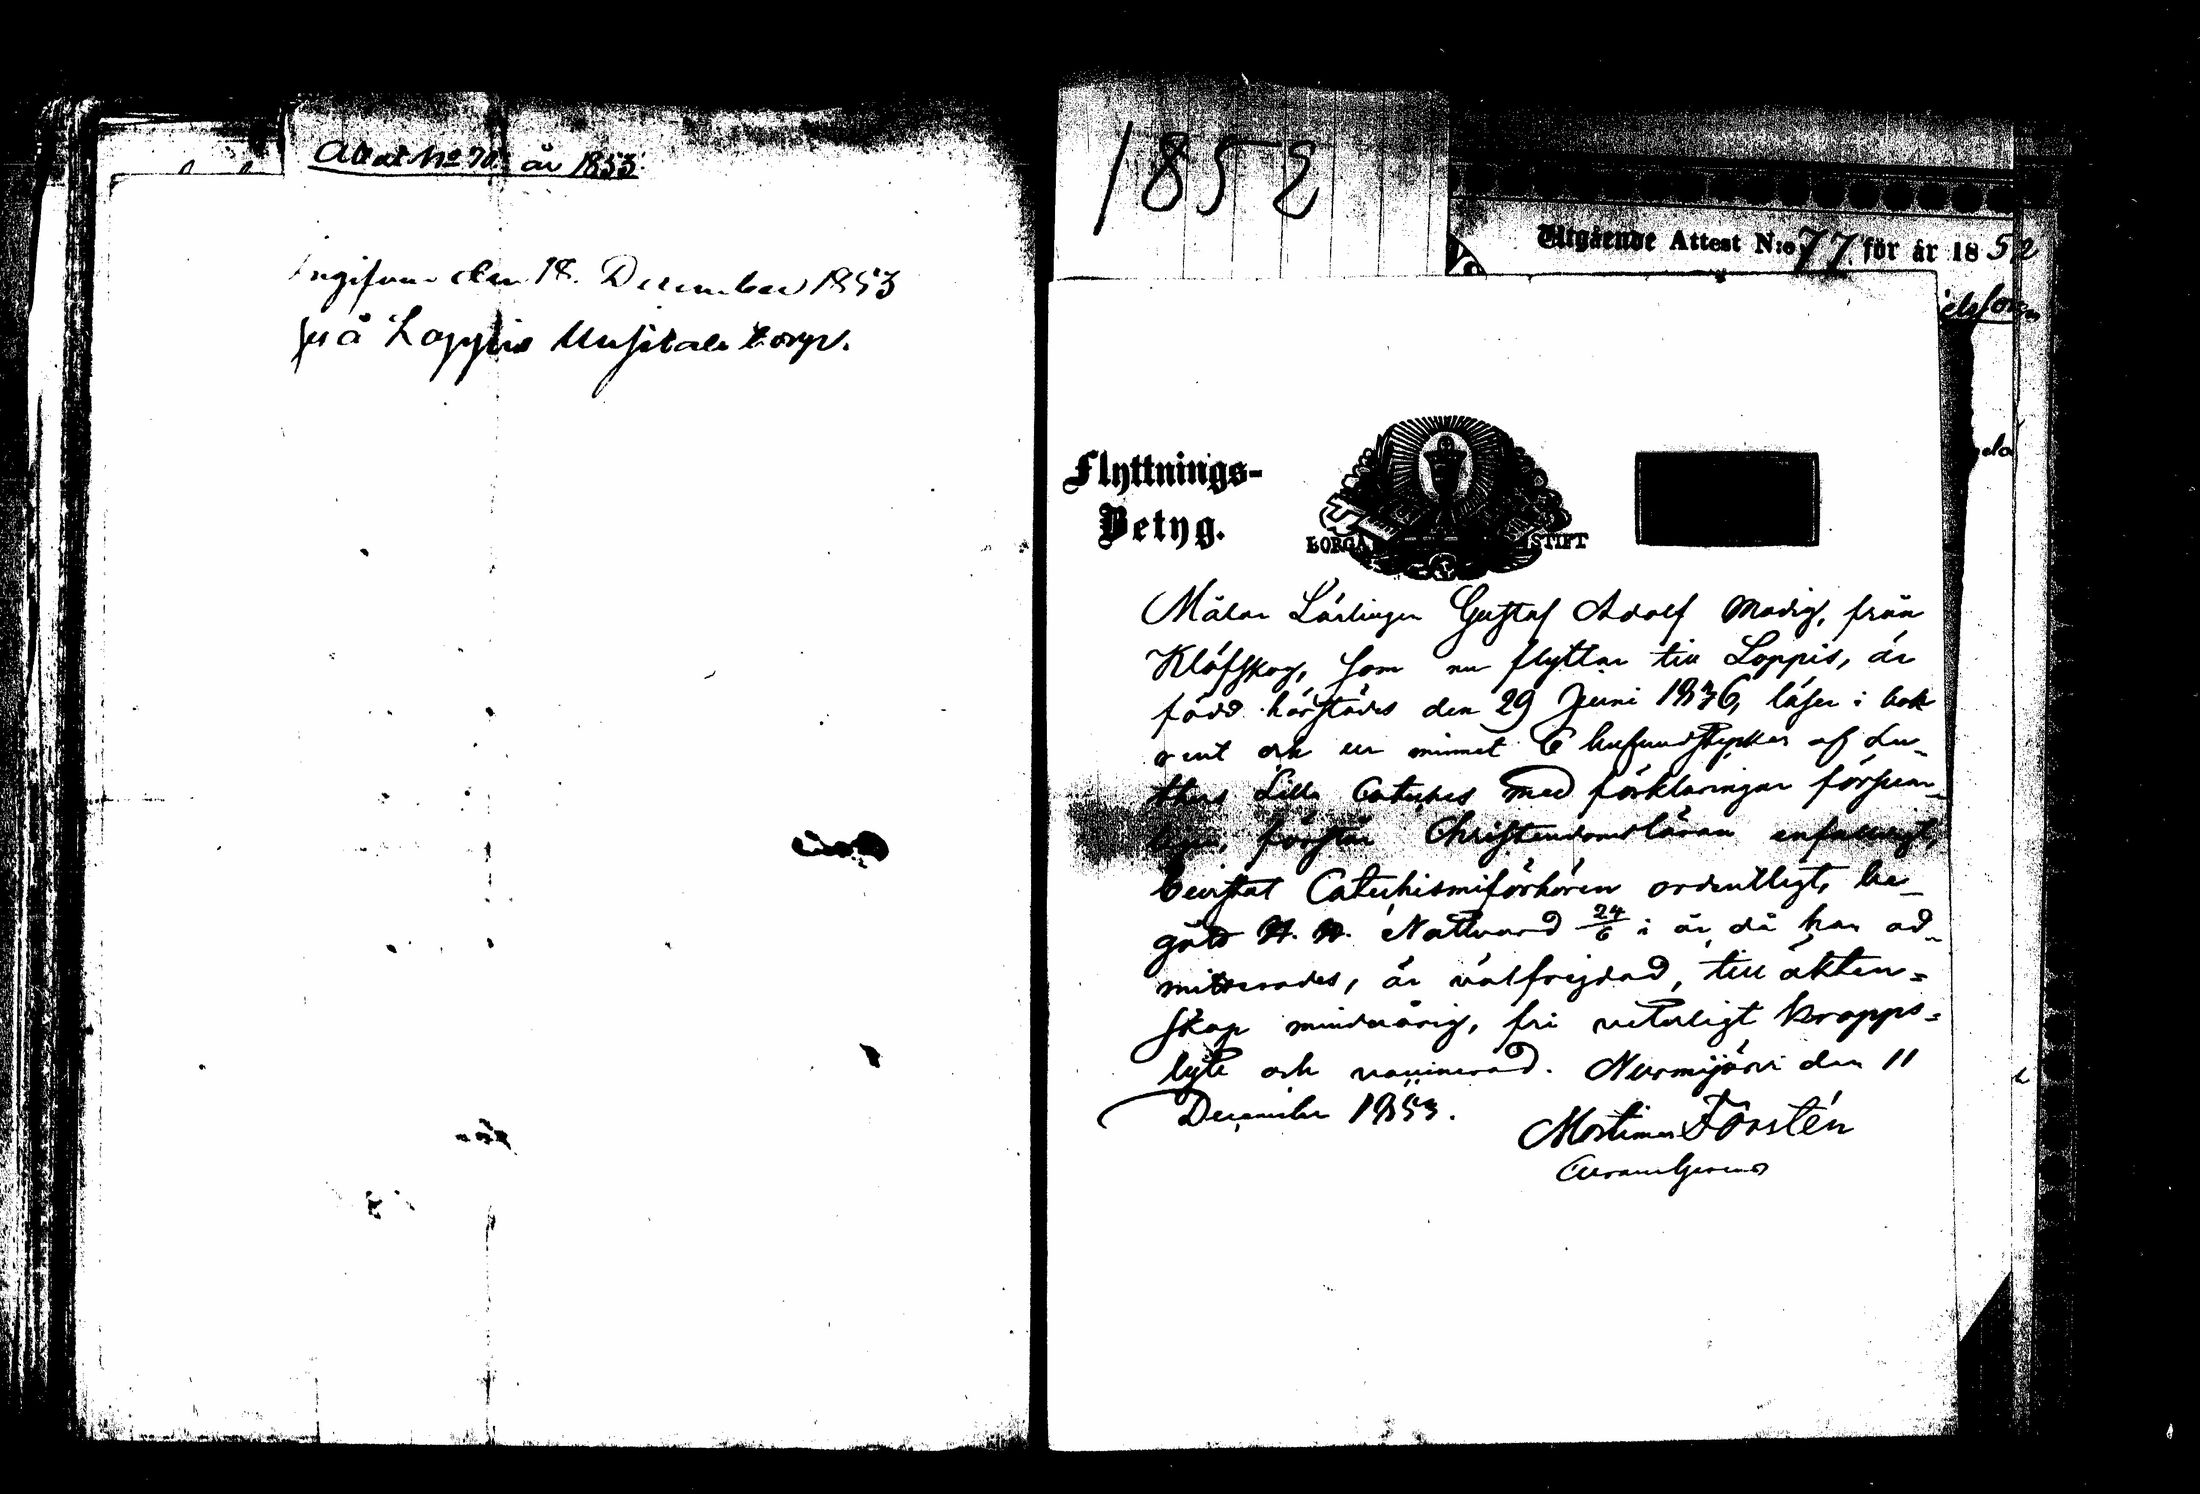 Attest No 70 år 1853
Ingifven den 18. December 1853
på Loppis Uusitalo torp.
1852
Utgående Attest N:o 77. för år 1852
elsfors
Flyttnings-
Betyg.
BORGÅ STIFT
Målar Lärlingen Gustaf Adolf Modig, från
Klöfskog, som nu flyttar till Loppis, är
född härstädes den 29 Juni 1836, läser i bok
rent och ur minnet 6 hufvudstycken af Lu-
thers Lilla Cateches med förklaringar försvar-
ligen, förstår Christendomsläran enfaldigt,
bevistat Catechismiförhören ordentligt, be-
gått H. H. Nattvard 24/6 i år, då han ad-
mitterades, är välfrejdad, till äkten-
skap minderårig, fri veterligt kropps-
lyte och vaccinerad. Nurmijärvi den 11
December 1853.
Mortimer Forstén